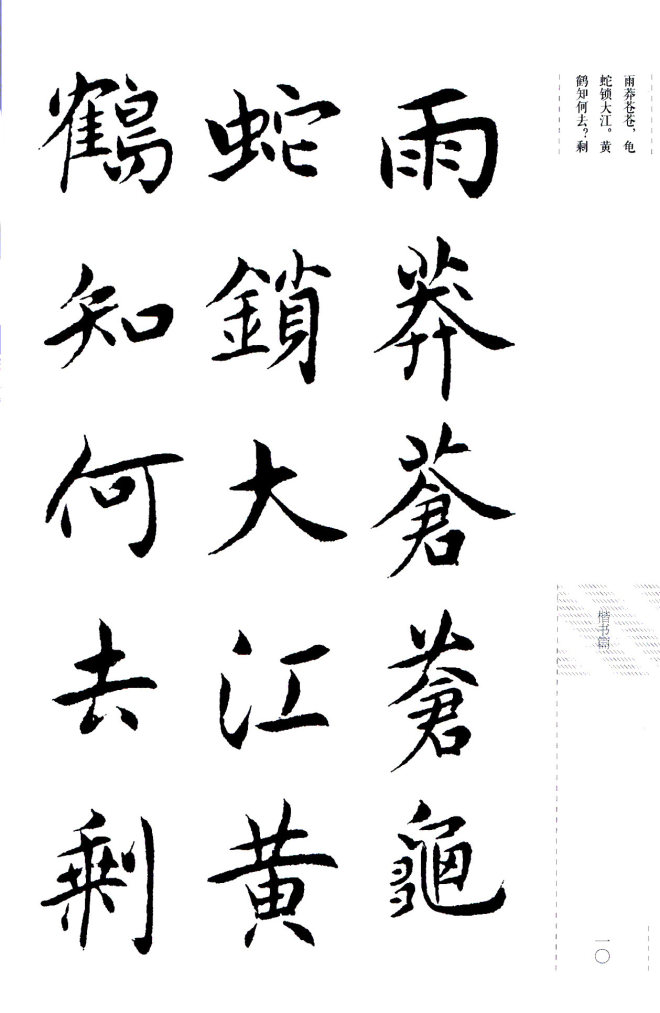 雨莽苍苍，龟
蛇锁大江。黄
鹤知何去？剩
楷书篇
一〇
雨莽蒼蒼龜
蛇鎖大江黄
鶴知何去剩